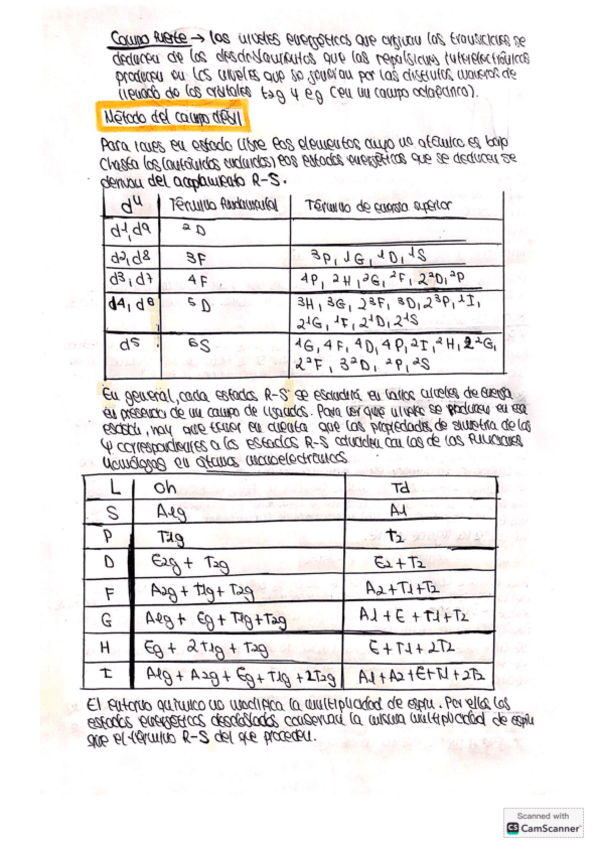 Campo fuerte → Los niveles energéticos que originan las transiciones se
deducen de los desdoblamientos que las repulsiones interelectrónicas
producen en los niveles que se generan por las distintas maneras de
llenado de los orbitales t2g y eg (en un campo octaédrico).
Método del campo débil
Para iones en estado libre los elementos cuyo nº atómico es bajo
(hasta los lantánidos incluidos) los estados energéticos que se deducen se
derivan del acoplamiento R-S.
dⁿ Término fundamental Término de energía superior
d¹, d9 ²D
d2, d8 3F 3P, 1G, 1D, 1S
d3, d7 4F 4P, 2H, 2G, 2F, 2²D, 2P
d4, d6 5D 3H, 3G, 2³F, 3D, 2³P, 1I,
2¹G, 1F, 2¹D, 2¹S
d5 6S 4G, 4F, 4D, 4P, 2I, 2H, 2²G,
2²F, 3²D, ²P, ²S
En general, cada estados R-S se escindirá en varios niveles de energía
en presencia de un campo de ligandos. Para ver que niveles se producen en esa
escisión, hay que tener en cuenta que las propiedades de simetría de las
Ψ correspondientes a los estados R-S coinciden con las de las funciones
homólogas en átomos monoelectrónicos.
L Oh Td
S A1g A1
P T1g t2
D E2g + T2g E2 + T2
F A2g + T1g + T2g A2 + T1 + T2
G A1g + Eg + T1g + T2g A1 + E + T1 + T2
H Eg + 2T1g + T2g E + T1 + 2T2
I A1g + A2g + Eg + T1g + 2T2g A1 + A2 + E + T1 + 2T2
El entorno químico no modifica la multiplicidad de espín. Por ellos los
estados energéticos desdoblados conservan la misma multiplicidad de espín
que el término R-S del que proceden.
Scanned with
CS CamScanner